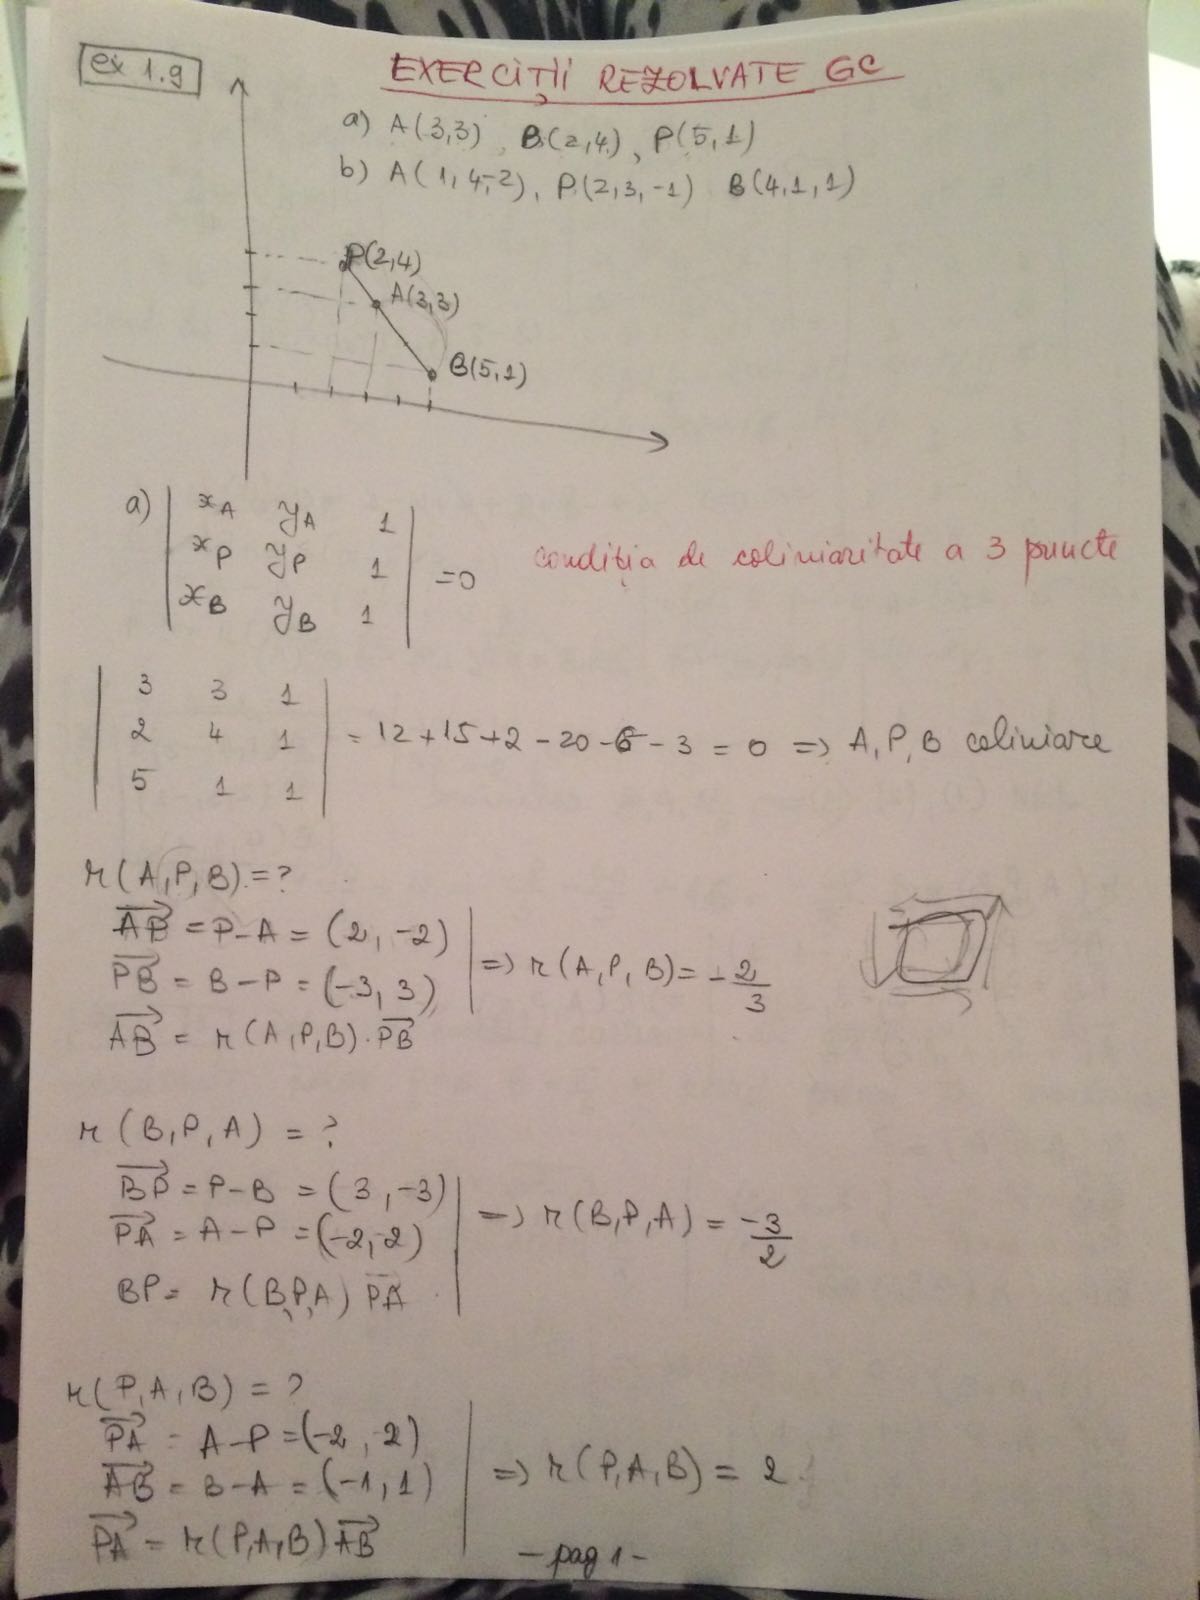 ex 1.9
EXERCIȚII REZOLVATE GC
a) A(3,3), B(2,4), P(5,1)
b) A(1,4,-2), P(2,3,-1) B(4,1,1)
P(2,4)
A(3,3)
B(5,1)
a) | x_A y_A 1 |
| x_P y_P 1 | =0 condiția de coliniaritate a 3 puncte
| x_B y_B 1 |
| 3 3 1 |
| 2 4 1 | = 12+15+2-20-6-3 = 0 => A, P, B coliniare
| 5 1 1 |
r(A,P,B)=?
AB = P-A = (2,-2)
PB = B-P = (-3,3) => r(A,P,B) = -2/3
AB = r(A,P,B)·PB
r(B,P,A) = ?
BP = P-B = (3,-3)
PA = A-P = (-2,-2) => r(B,P,A) = -3/2
BP = r(B,P,A) PA
r(P,A,B) = ?
PA = A-P = (-2,-2)
AB = B-A = (-1,1) => r(P,A,B) = 2
PA = r(P,A,B) AB
- pag 1 -